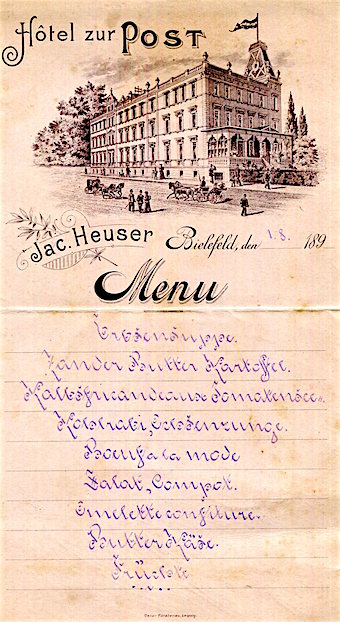 Hôtel zur Post
Jac. Heuser
Bielefeld, den 1.8. 189
Menu
Erbsensuppe.
Zander Butter Kartoffel.
Kalbsfricandeaux Tomatensce.
Kohlrabi, Erbsen, Zunge.
Boeuf a la mode
Salat, Compot.
Omelette confiture.
Butter Käse.
Früchte